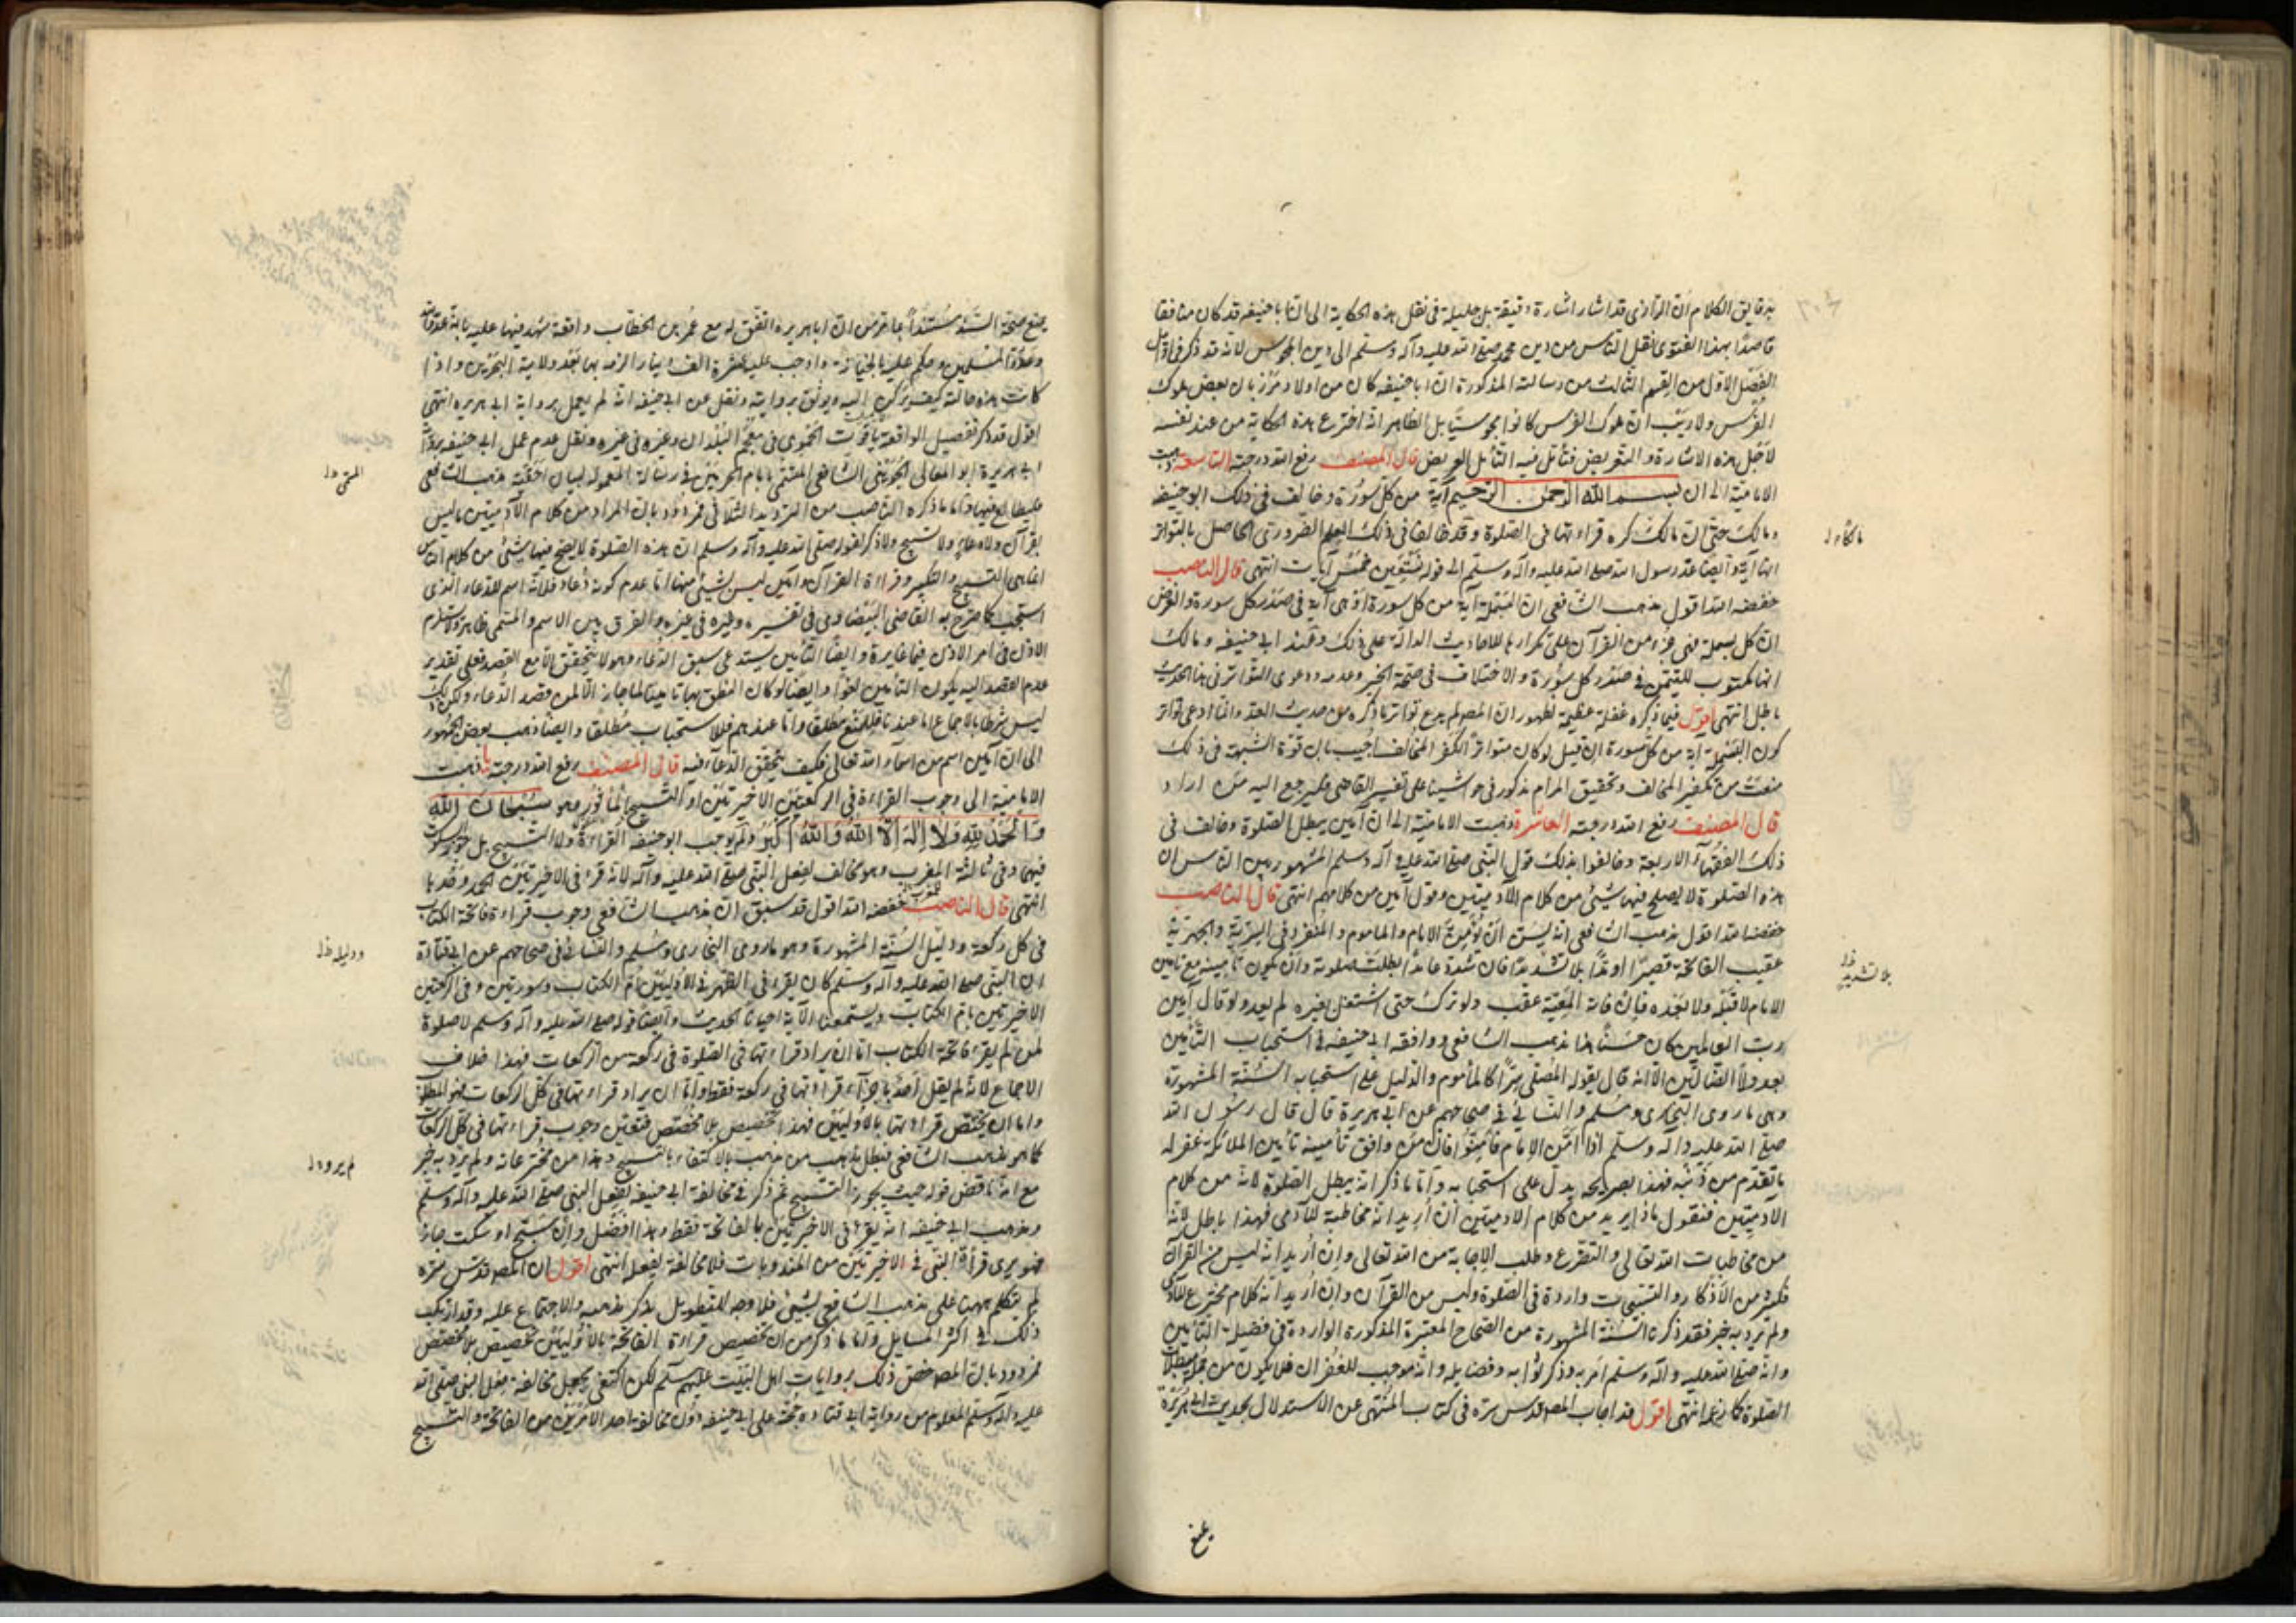 قاصدًا بهذا الفتوى نقل الناس من دين محمد صلى الله عليه وآله وسلم الى دين المجوس لانه قد ذكر في اوايل
الفصل الاول من القسم الثالث من رسالته المذكورة ان ابا حنيفه كان من اولاد مرزبان بعض ملوك
الفرس ولا ريب ان ملوك الفرس كانوا مجوسيًّا بل الظاهر انه اخترع هذه الحكاية من عند نفسه
لاجل هذه الاشارة والتعريض فتأمل فيه التأمل العريض قال المصنف رفع الله درجته التاسعة ذهبت
الامامية الى ان بسم الله الرحمن الرحيم آية من كل سورة وخالف في ذلك ابو حنيفه
ومالك حتى ان مالك كره قراءتها في الصلوة وقد خالفا في ذلك العلم الضروري الحاصل بالتواتر
انها آية وايضا عد رسول الله صلى الله عليه وآله وسلم الى قوله نستعين خمس آيات انتهى قال الناصب
خفضه الله اقول مذهب الشافعي ان البسملة آية من كل سورة اذ هي آية في صدر كل سورة والفرض
ان كل بسملة فهي جزء من القرآن على تكرارها للاحاديث الدالة على ذلك وعند ابي حنيفه ومالك
انها مكتوب للتيمن في صدر كل سورة والاختلاف في صحة الخبر وعدمه ودعوى التواتر في هذا الحديث
باطل انتهى اقول فيما ذكره غفلة عظيمة لظهور ان المصـ لم يدع تواتر ما ذكره من حديث العد وانما ادعى تواتر
كون البسملة اية من كل سورة ان قيل لو كان متواترًا لكفر المخالف اجيب بان قوة الشبهة في ذلك
منعت من تكفير المخالف وتحقيق المرام مذكور في حواشينا على تفسير القاضي فليرجع اليه من اراد
قال المصنف رفع الله درجته العاشرة ذهبت الامامية الى ان آمين يبطل الصلوة وخالف في
ذلك الفقهاء الاربعة وخالفوا بذلك قول النبي صلى الله عليه وآله وسلم المشهور بين الناس ان
هذه الصلوة لا يصلح فيها شيئ من كلام الآدميين وقول آمين من كلامهم انتهى قال الناصب
خفضه الله اقول مذهب الشافعي انه يسن ان يؤمن الامام والماموم والمنفرد في السرية والجهرية
عقيب الفاتحة قصيرًا او مدًّا بلا تشديد فان شدد عامدًا بطلت صلوته وان يكون تامينه مع تامين
الامام لا قبله ولا بعده فان فاته المعية عقب ولو ترك حتى اشتغل بغيره لم يعد ولو قال آمين
رب العالمين كان حسنًا هذا مذهب الشافعي ووافقه ابي حنيفه في استحباب التأمين
بعد ولا الضالين الا انه قال يقوله المصلي سرًّا كالماموم والدليل على استحبابه السنة المشهورة
وهي ما روى البخاري ومسلم والنسائي في صحاحهم عن ابي هريرة قال قال رسول الله
صلى الله عليه وآله وسلم اذا امن الامام فأمنوا فان من وافق تأمينه تأمين الملائكة غفر له
ما تقدم من ذنبه فهذا بصريحه يدل على استحبابه وأما ما ذكر انه يبطل الصلوة لانه من كلام
الآدميين فنقول ماذا يريد من كلام الادميين أن أريد انه مخاطبة للآدمي فهذا باطل لانه
من مخاطبات الله تعالى والتضرع وطلب الاجابة من الله تعالى وان أريد انه ليس من القرآن
فكثير من الأذكار والتسبيحات واردة في الصلوة وليس من القرآن وان أريد انه كلام مخترع للآدمي
ولم يرد به خبر فقد ذكرنا السنة المشهورة من الصحاح المعتبرة المذكورة الواردة في فضيلة التأمين
وانه صلى الله عليه وآله وسلم امر به وذكر ثوابه وفضايله وانه موجب للغفران فلا يكون من مبطلات
الصلوة كما زعمه انتهى اقول قد اجاب المصـ قدس سره في كتاب المنتهى عن الاستدلال بحديث ابي هريرة
يمنع صحة السند مستندًا بما تقرر من ان ابا هريرة اتفق له مع عمر بن الخطاب واقعة شهد فيها عليه بانه عدو الله
وعدو المسلمين وحكم عليه بالخيانة واوجب عليه عشرة الف دينار الزمه بها بعد ولاية البحرين واذا
كانت هذه حالته كيف يركن اليه ويوثق بروايته ونقل عن ابي حنيفه انه لم يعمل برواية ابي هريره انتهى
اقول قد ذكر تفصيل الواقعة ياقوت الحموي في معجم البلدان وغيره في غيره ونقل عدم عمل ابي حنيفه برواية
ابي هريرة ابو المعالي الجويني الشافعي المشتهر بامام الحرمين في رسالة المعمولة لبيان احقية مذهب الشافعي
فليطالع فيها واما ما ذكره الناصب من الترديد الثلاثي فمردود بان المراد من كلام الآدميين ما ليس
بقرآن ولا دعاء ولا تسبيح ولا ذكر لقوله صلى الله عليه وآله وسلم ان هذه الصلوة لا يصلح فيها شيئ من كلام الناس
انما هي التسبيح والتكبير وقراءة القرآن وآمين ليس بشيئ منها اما عدم كونه دعاء فلانه اسم للدعاء الذي
استجب كما صرح به القاضي البيضاوي في تفسيره وغيره في غيره والفرق بين الاسم والمسمى ظاهر
عدم القصد اليه يكون التأمين لغوًا وايضا لو كان النطق بها تامينا لما جاز الا لمن قصد الدعاء ولكن ذلك
ليس شرطا بالاجماع اما عندنا فللمنع مطلقًا واما عندهم فللاستحباب مطلقا وايضا ذهب بعض الجمهور
الى ان آمين اسم من اسماء الله تعالى فكيف يتحقق الدعاء فيه قال المصنف رفع الله درجته ذهبت
الامامية الى وجوب القراءة في الركعتين الاخيرتين او التسبيح المأثور وهو سبحان الله
والحمد لله ولا اله الا الله والله اكبر ولم يوجب ابو حنيفه القراءة ولا التسبيح بل جوز السكوت
فيهما وفي ثالثة المغرب وهو مخالف لفعل النبي صلى الله عليه وآله لانه قراء في الاخيرتين الحمد وحدها
انتهى قال الناصب خفضه الله اقول قد سبق ان مذهب الشافعي وجوب قراءة فاتحة الكتاب
في كل ركعة ودليل السنة المشهورة وهو ما روى البخاري ومسلم والنسائي في صحاحهم عن ابي قتادة
ان النبي صلى الله عليه وآله وسلم كان يقراء في الظهر في الاوليين ام الكتاب وسورتين وفي الركعتين
الاخيرتين بام الكتاب ويسمعنا الآية احيانًا الحديث وايضا قوله صلى الله عليه وآله وسلم لا صلوة
لمن لم يقراء فاتحة الكتاب اما ان يراد قراءتها في الصلوة في ركعة من الركعات فهذا خلاف
الاجماع لانه لم يقل احد باجزاء قراءتها في ركعة فقط واما ان يراد قراءتها في كل الركعات فهو المطلوب
واما ان يختص قراءتها بالاوليين فهذا تخصيص بلا مخصص فتعين وجوب قراءتها في كل الركعات
كما هو مذهب الشافعي فبطل مذهب من ذهب بالاكتفاء بالتسبيح وهذا من مخترعاته ولم يرد به خبر
مع انه ناقض قوله حيث يجوز التسبيح ثم ذكر في مخالفة ابي حنيفه لفعل النبي صلى الله عليه وآله وسلم
ومذهب ابي حنيفه انه يقراء في الاخيرتين بالفاتحة فقط وهذا افضل وان سبح او سكت جاز
فهو يرى قراءة النبي في الاخيرتين من المندوبات فلا مخالفة لفعله انتهى اقول ان المصـ قدس سره
لم يتكلم ههنا على مذهب الشافعي بشيئ فلا وجه للتطويل بذكر مذهبه والاحتجاج عليه وقد ارتكب
ذلك في اكثر المسايل وأما ما ذكر من ان تخصيص قراءة الفاتحة بالاوليين تخصيص بلا مخصص
فمردود بان المصـ خصص ذلك بروايات اهل البيت عليهم السلم لكن اكتفى بجعل مخالفة فعل النبي صلى الله
عليه وآله وسلم المعلوم من رواية ابي قتاده حجة على ابي حنيفه دون مخالفة احد الامرين من الفاتحة والتسبيح